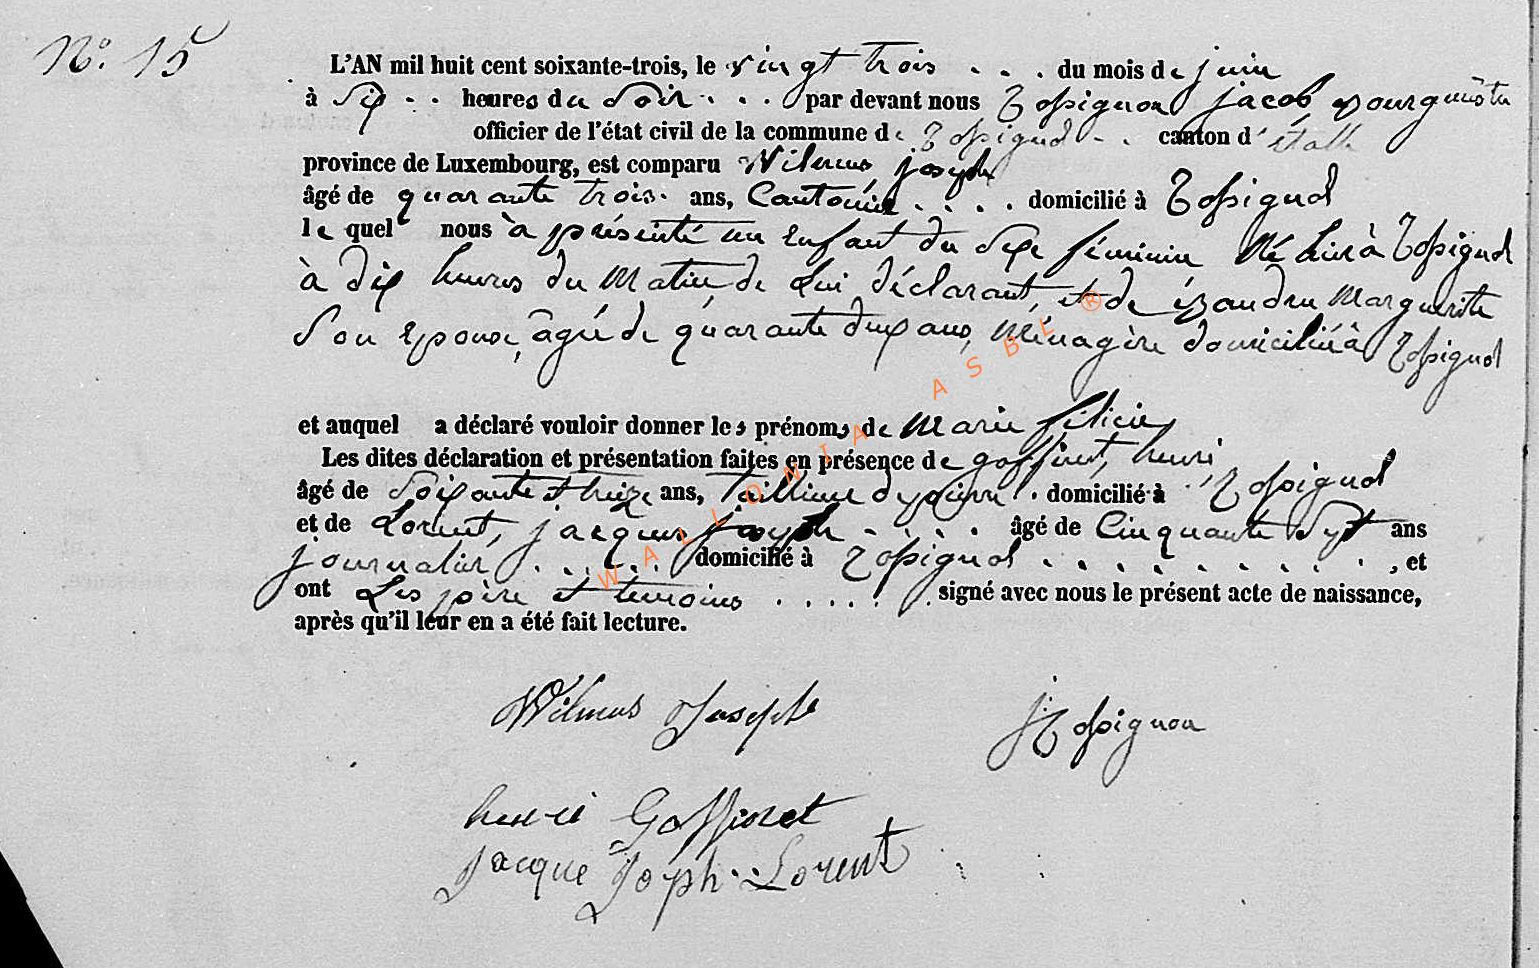 N°. 15
L'AN mil huit cent soixante-trois, le vingt trois . . . du mois de juin
à Six . . heures du Soir . . . par devant nous Rossignon jacob, Bourgumestre
officier de l'état civil de la commune de Rossignol . . canton d'étalle
province de Luxembourg, est comparu Wilmus, joseph
âgé de quarante trois. ans, Cantonier . . . . domicilié à Rossignol
le quel nous à présenté un Enfant du Sexe féminin Né hier à Rossignol
à dix heures du Matin, de Lui déclarant, et de Marguerite
Son Epouse, âgée de quarante deux ans, Ménagère domiciliée à Rossignol
et auquel a déclaré vouloir donner les prénoms de Marie félicie,
Les dites déclaration et présentation faites en présence de goffinet, henri
âgé de Soixante et treize ans, Tailleur de pierre . domicilié à Rossignol
et de Lorent, jacques joseph . . . . . âgé de Cinquante Sept ans
journalier . . . . . . domicilié à Rossignol . . . . . . . . . . , et
ont Les père et temoins . . . . . . signé avec nous le présent acte de naissance,
après qu'il leur en a été fait lecture.
Wilmus Joseph
jRossignon
henri Goffinet
Jacque Joseph . . Lorent
WALLONIA ASBL ®